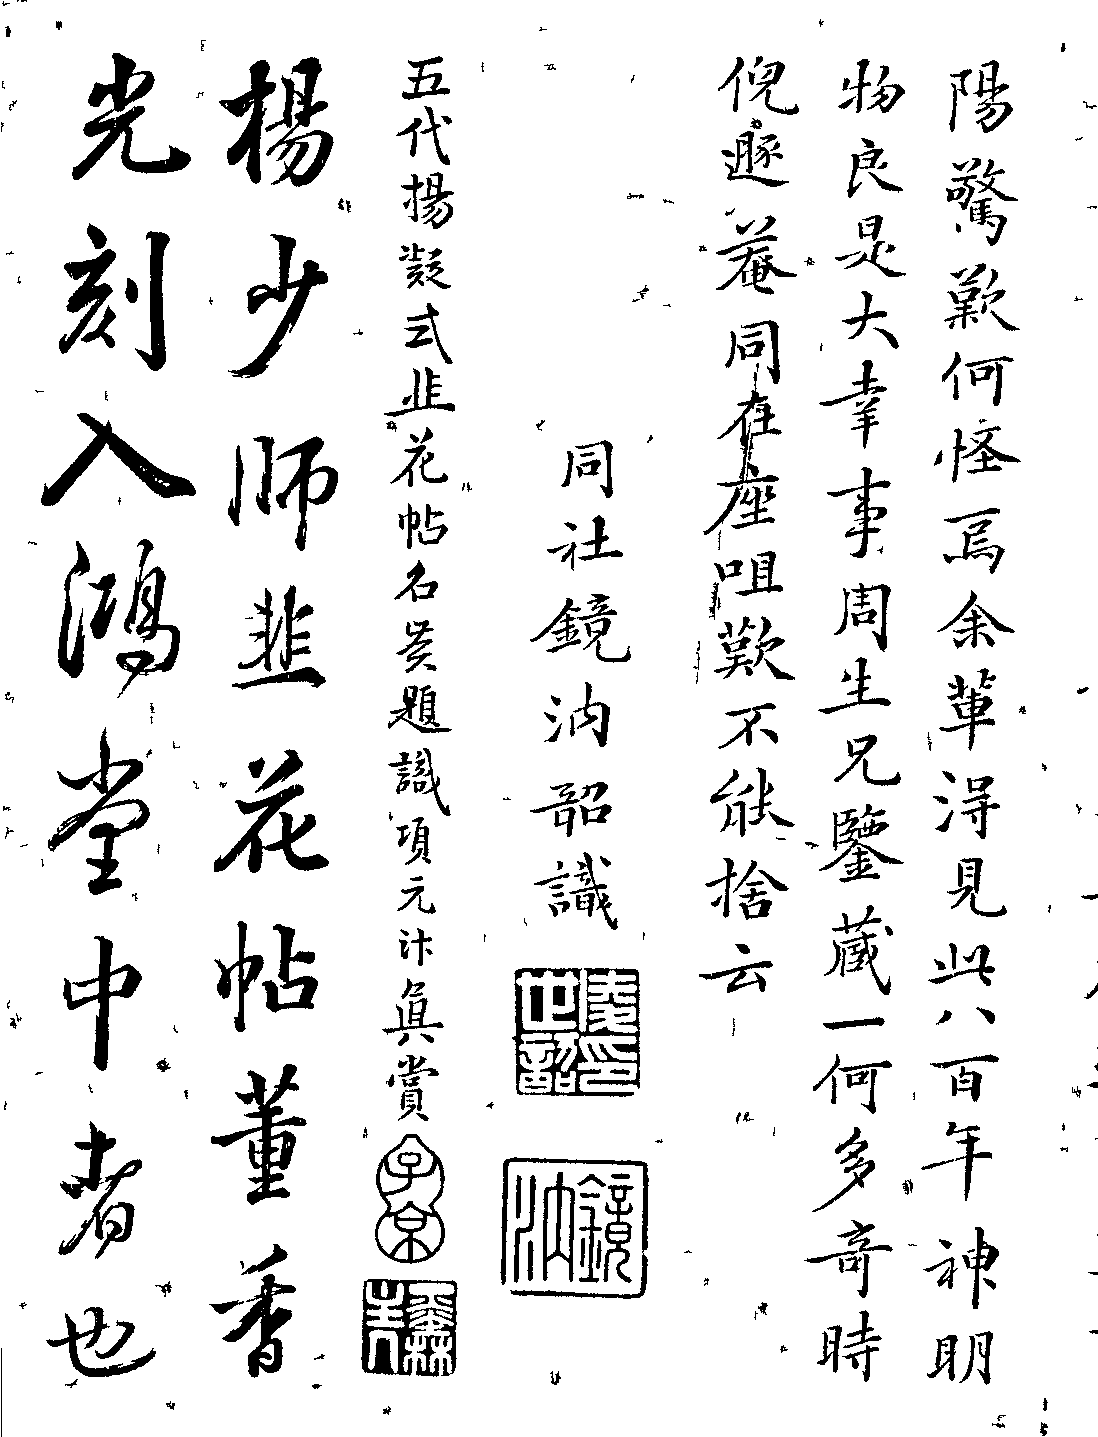 陽驚歎何怪焉余輩得見此八百年神明
物良是大幸事周生兄鑒藏一何多奇時
倪遯菴同在座咀歎不能捨云
同社鏡汭韶識
鏡汭
五代揚凝式韭花帖名賢題識項元汴真賞
子京
楊少師韭花帖董香
光刻入鴻堂中者也